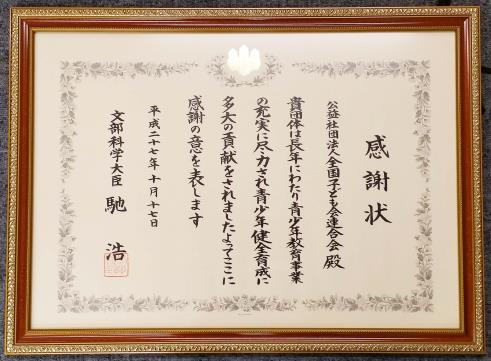 感謝状
公益社団法人全国子ども会連合会 殿
貴団体は長年にわたり青少年教育事業
の充実に尽力され青少年健全育成に
多大の貢献をされましたよってここに
感謝の意を表します
平成二十七年十月十七日
文部科学大臣 馳 浩